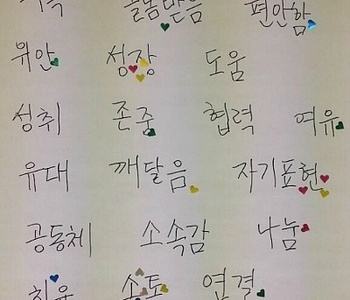 돌봄받음 편안함
위안 성장 도움
성취 존중 협력 여유
유대 깨달음 자기표현
공동체 소속감 나눔
치유 소통 연결